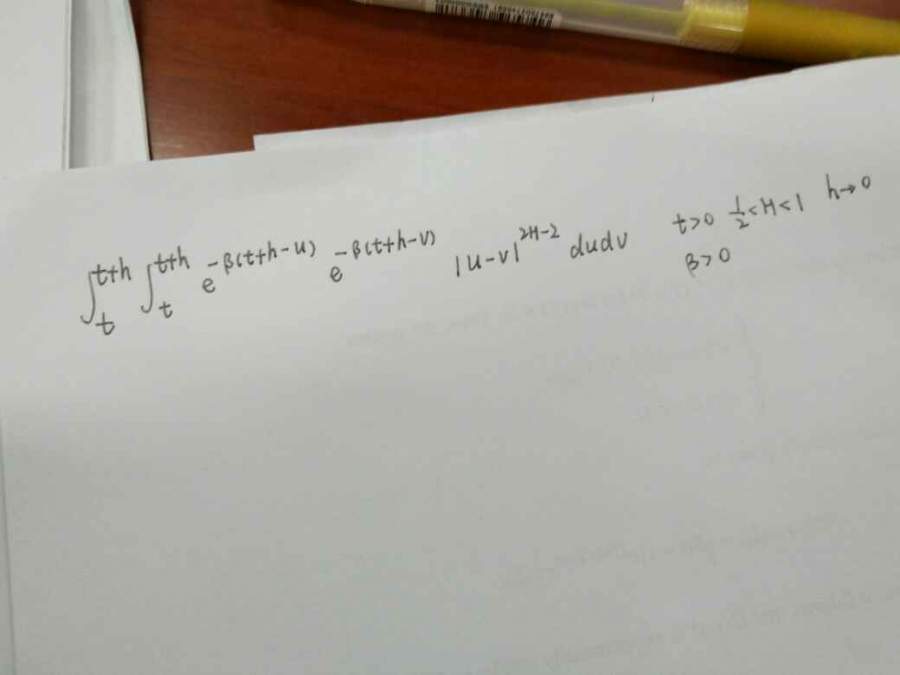 ∫_t^{t+h} ∫_t^{t+h} e^{-β(t+h-u)} e^{-β(t+h-v)} |u-v|^{2H-2} dudv t>0 1/2<H<1 h→0
β>0